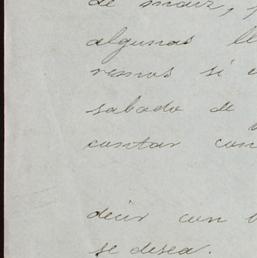 de maiz,
algunas
remos si
sabado de
contar con
decir con
se desea.